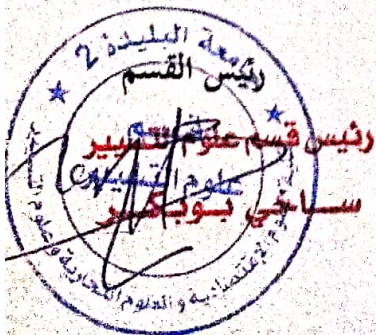 جامعة البليدة 2
رئيس القسم
رئيس قسم علوم التسيير
قسم
علوم التسيير
ساحي بوبكر
العلوم الاقتصادية و العلوم التجارية وعلوم